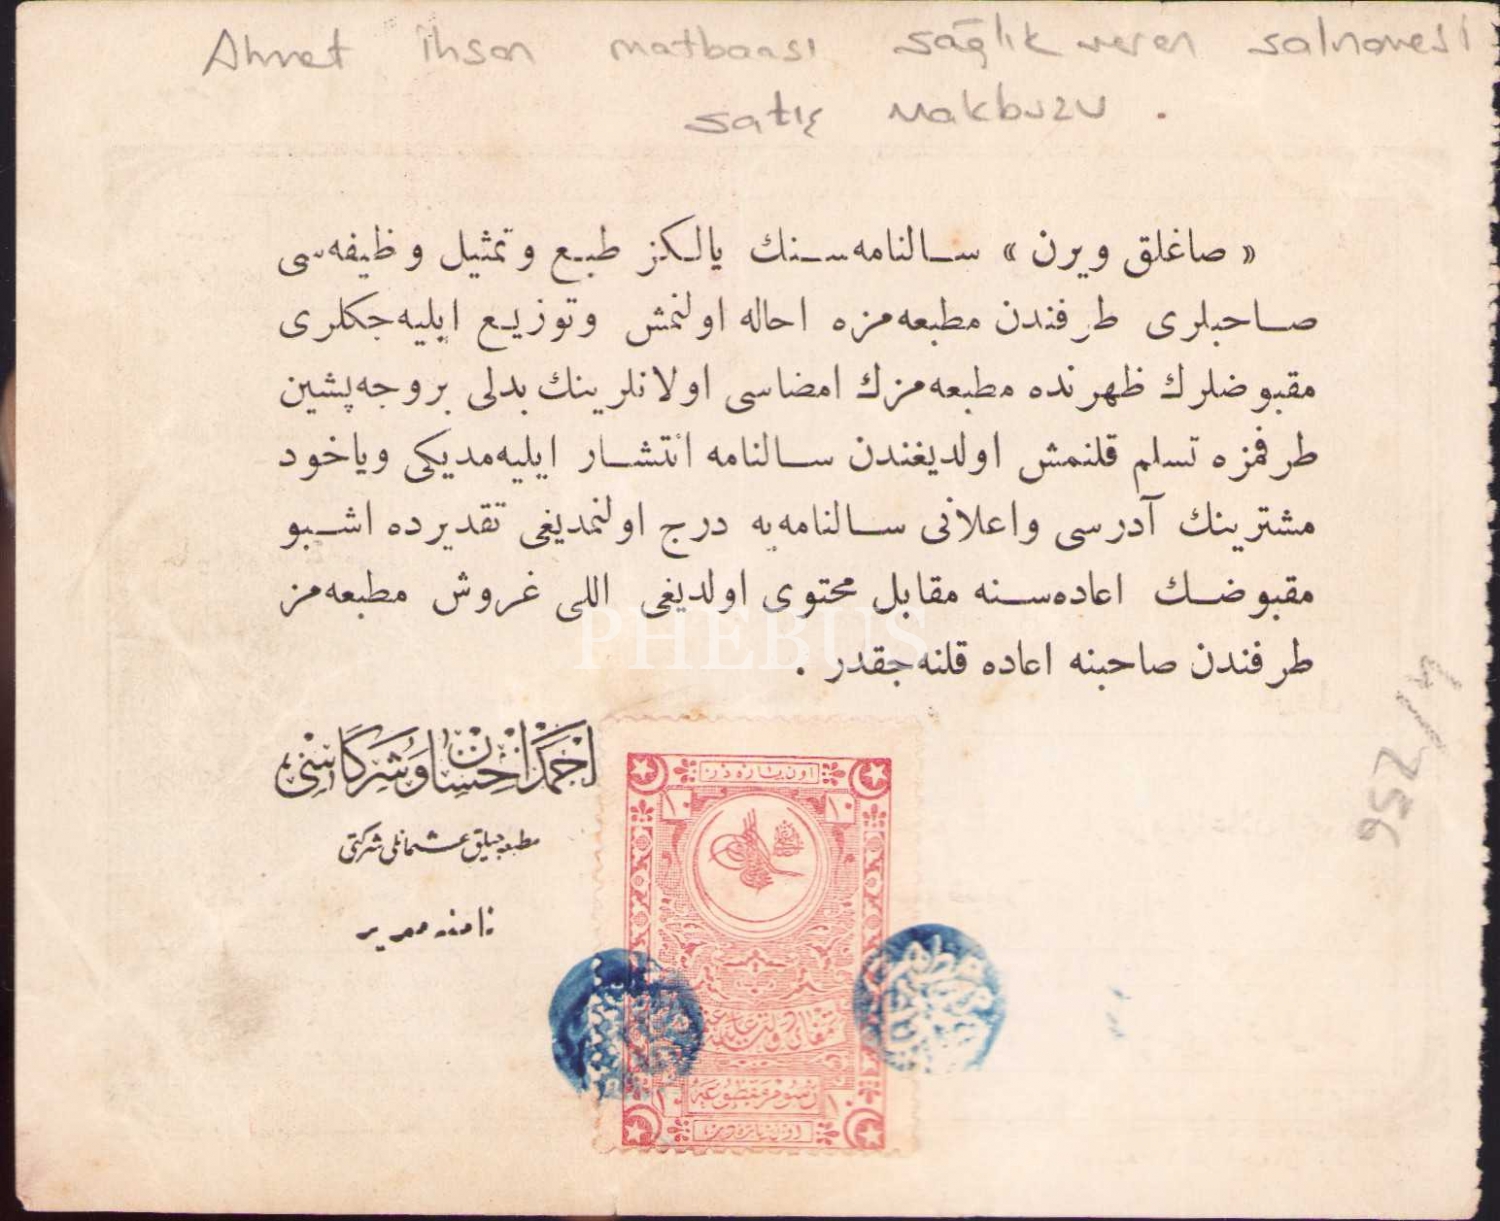 Ahmet ihsan matbaası sağlık veren salnamesi
satış Makbuzu .
« صاغلق ویرن » سالنامه‌سنك یالكز طبع و تمثیل وظیفه‌سی
صاحبلری طرفندن مطبعه‌مزه احاله اولنمش وتوزیع ایلیه‌جكلری
مقبوضلرك ظهرنده مطبعه‌مزك امضاسی اولانلرینك بدلی بروجه‌پشین
طرفمزه تسلم قلنمش اولدیغندن سالنامه انتشار ایلیه‌مدیكی ویاخود
مشترینك آدرسی واعلانی سالنامه‌یه درج اولنمدیغی تقدیرده اشبو
مقبوضك اعاده‌سنه مقابل محتوی اولدیغی اللی غروش مطبعه‌مز
طرفندن صاحبنه اعاده قلنه‌جقدر .
PHEBUS
احمد احسان وشركاسی
مطبعه‌جیلق عثمانلی شركتی
نامنه مدیر
اون پاره‌در
١٠ ١٠
رسومه مقطوعه
١٠ ١٠
اون پاره‌در